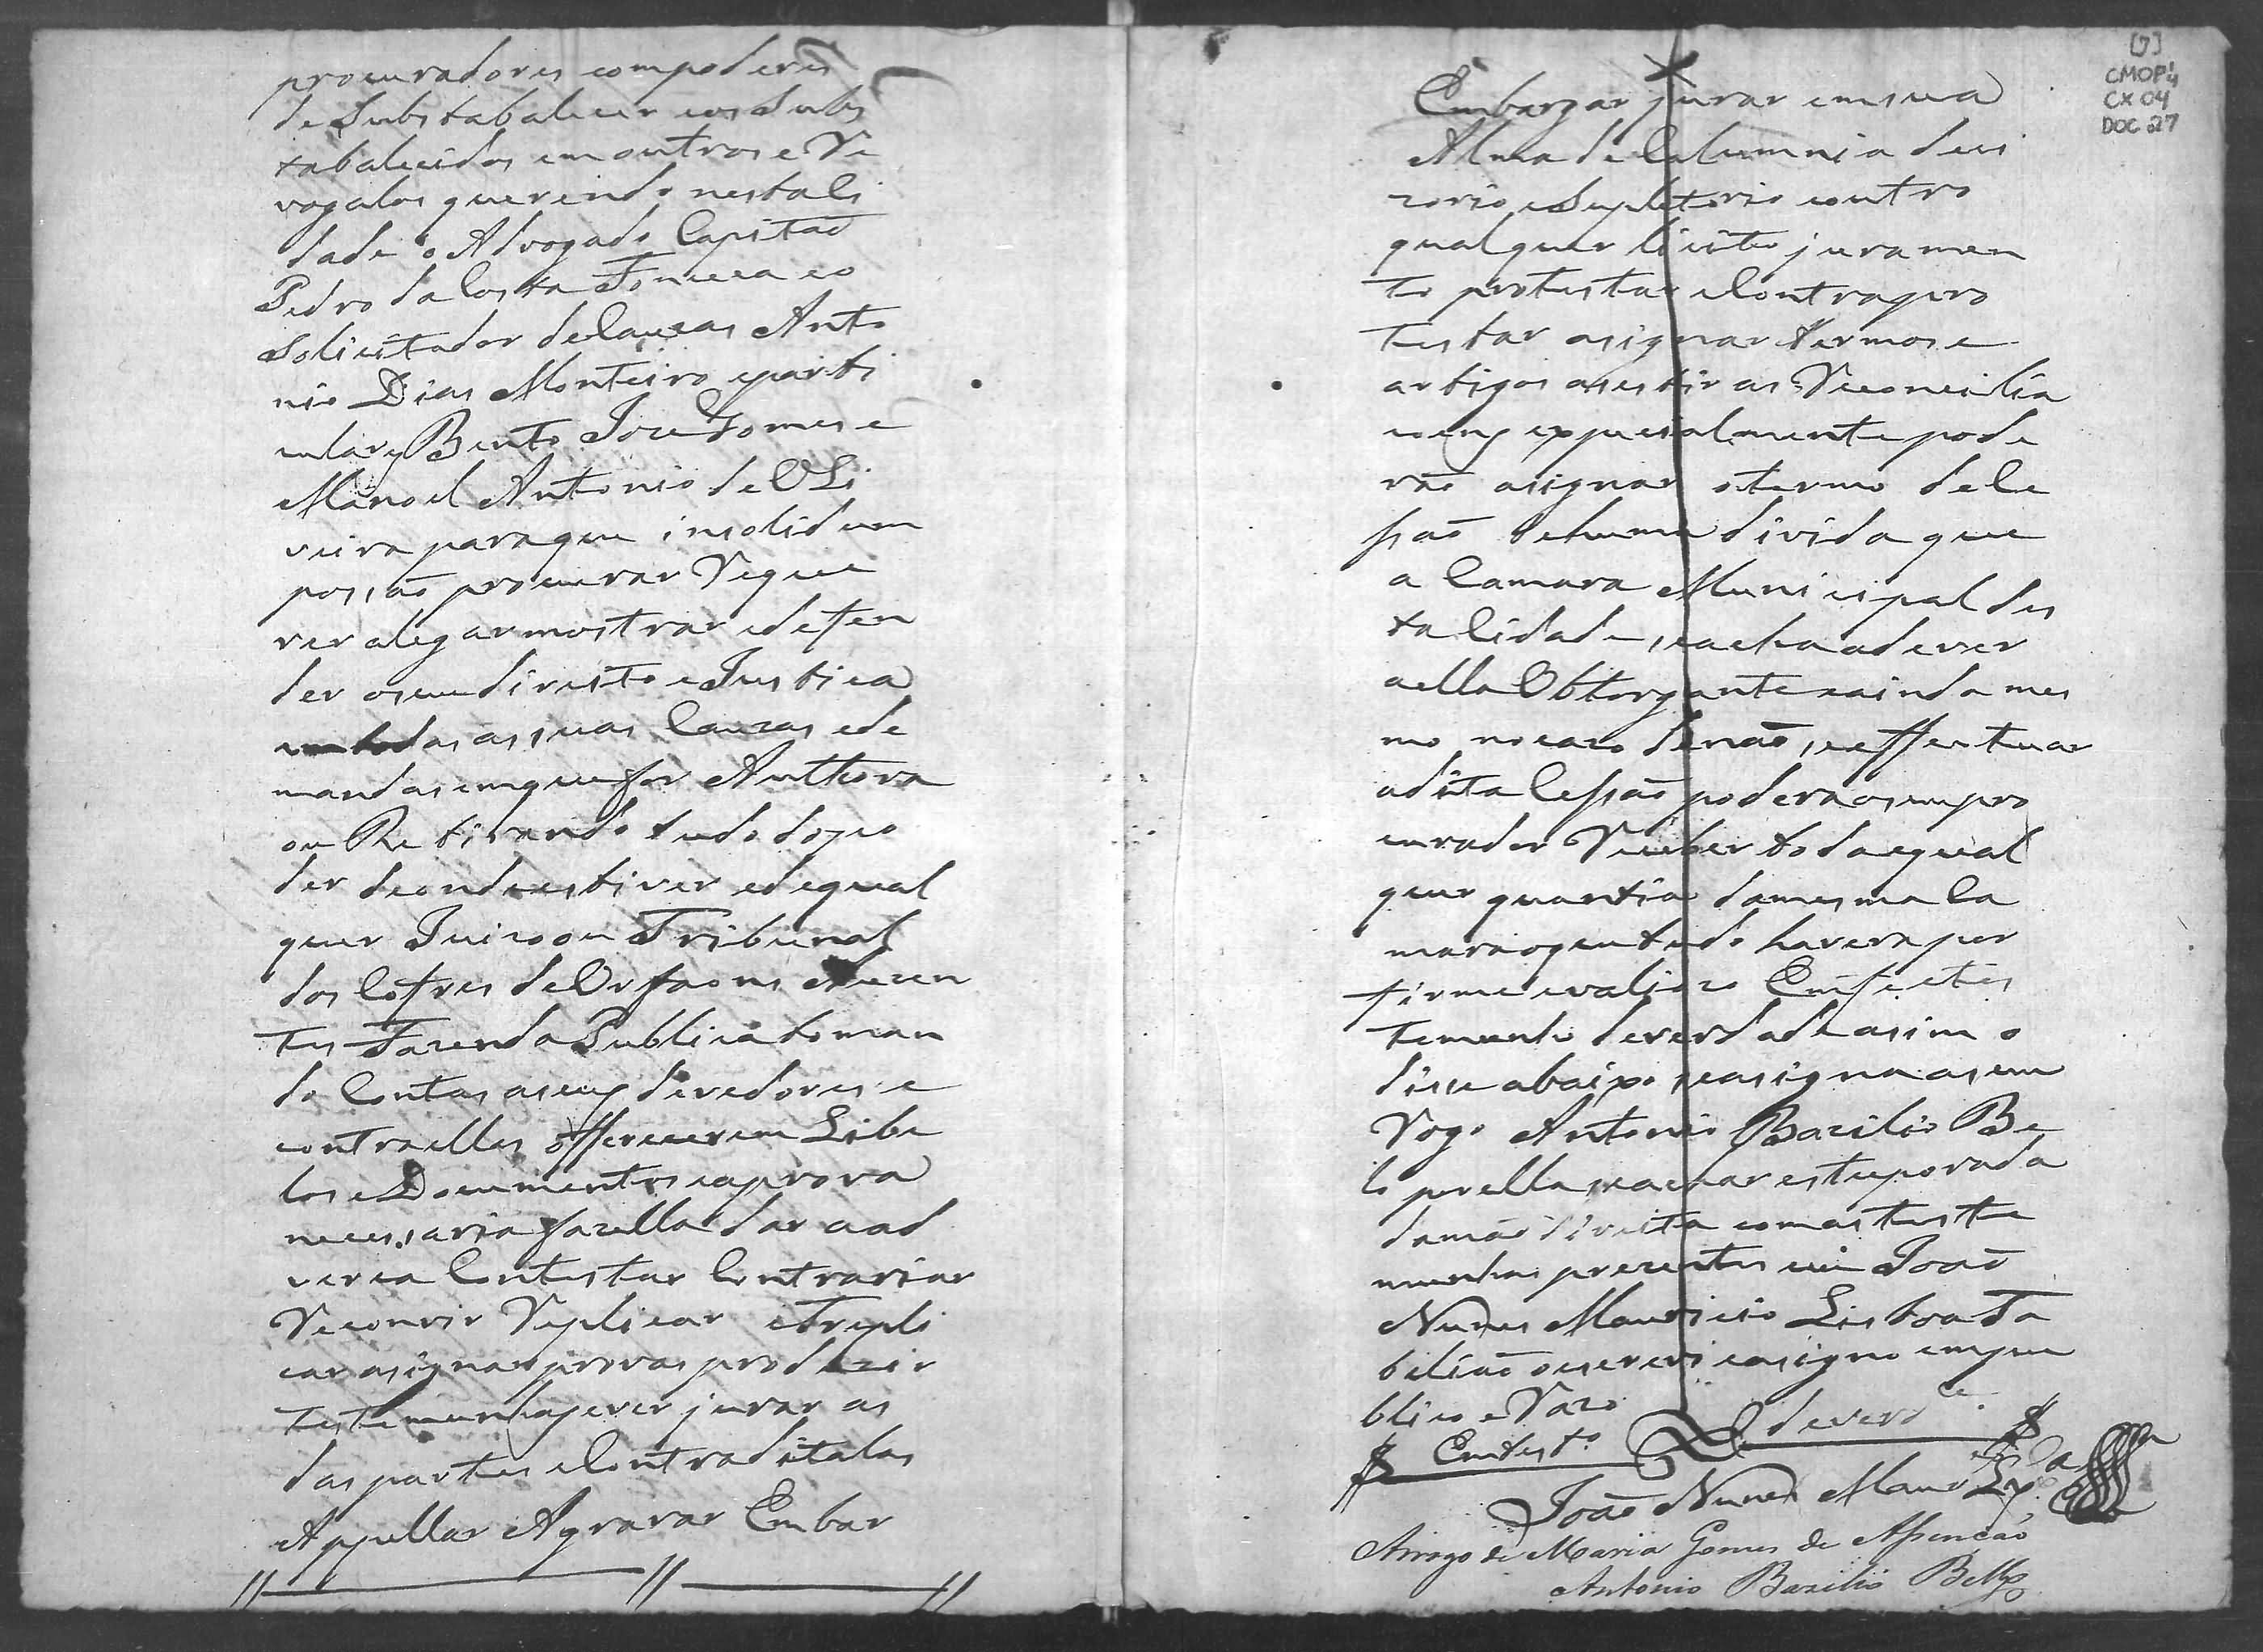 procuradores com poderes
de Substabalecer eos Subs
tabalecidos em outros e Re
vogalos querendo nesta Ci
dade o Advogado Capitaõ
Pedro da Costa Fonceca eo
Solicitador de Cauzas Anto
nio Dias Monteiro eparti
culares Bento Joze Gomes e
Manoel Antonio de Oli
veira paraque insolidum
possaõ procurar Reque
rer alegar mostrar edefen
der oseu direito e Justica
em todas as suas Cauzas ede
mandas emque for Authora
ou Re tirando tudo do po
der de onde estiver ede qual
quer Juizo ou Tribunal
dos Cofres de Orfaons Auzen
tes Fazenda Publica toman
do Contas aseus devedores e
contra elles offerecerem Libe
los e Documentos eaprova
necessaria fazella dar aad
versa Contestar Contrariar
Reconvir Replicar e Trepli
car asignar provas produzir
testemunhas ever jurar as
das partes e Contraditalas
Appellar Agravar Embar
[7]
CMOP
CX 04
DOC 27
Embargar jurar em sua
Alma de Calumnia deci
zorio e Supletorio e outro
qualquer licito juramen
to protestar e Contrapro
testar asignar termos e
artigos asestir as Reconcilia
coens expecialmente pode
raõ asignar o termo de Ce
ssaõ de huma divida que
a Camara Municipal des
ta Cidade, se acha adever
a ella Obtorgante eainda mes
mo nocazo de naõ, se effectuar
adita Cessaõ podera oseu pro
curador Receber toda e qual
quer quantia da mesma Ca
mara oque tudo havera por
firme evaliozo Em fe e tes
temunho de verdade asim o
disse abaixo se asigna aseu
Rogo Antonio Bazilio Be
lo por ella se achar estuporada
da maõ direita com as teste
munhas prezentes eu Joaõ
Nunes Mauricio Lisboa Ta
beliaõ o escrevi easigno em pu
blico e Razo
Em test.º de verd.e
Joaõ Nunes Maur.º Lx.ª
Arrogo de Maria Gomes de Assençaõ
Antonio Bazilio Bello